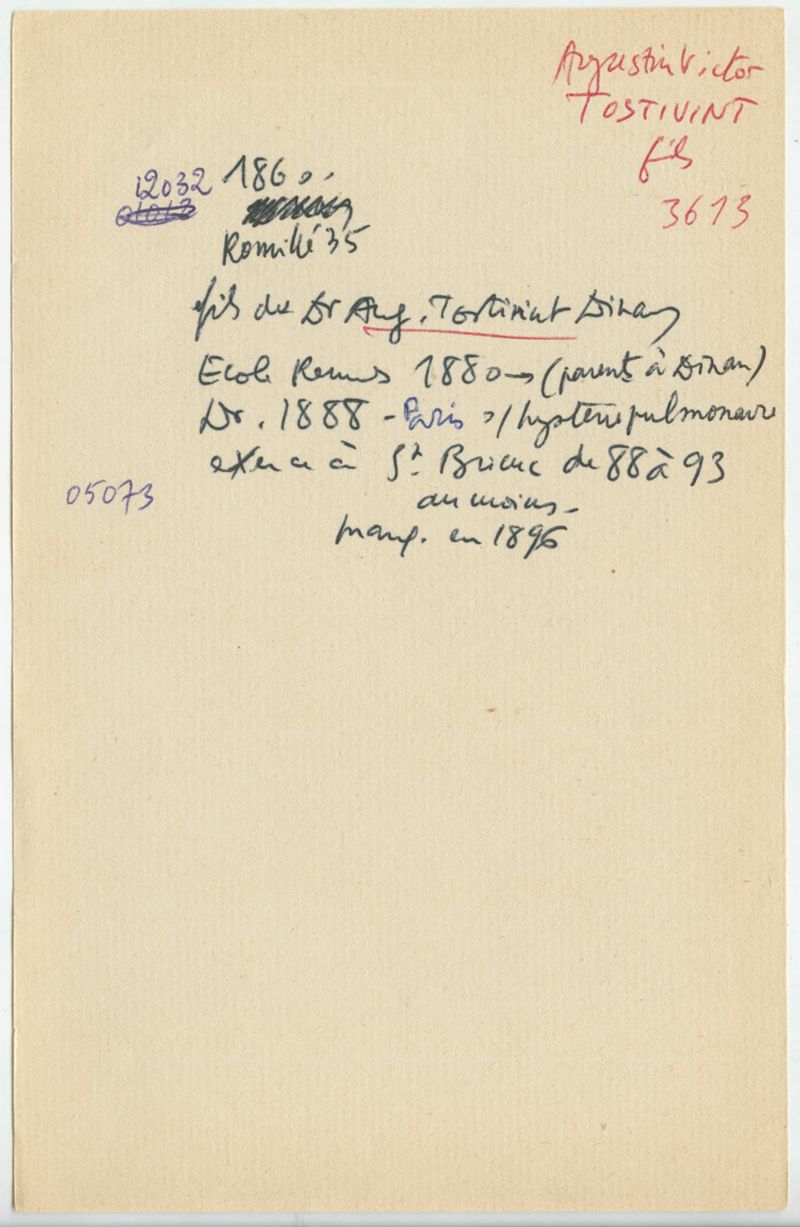 Augustin Victor
TOSTIVINT
fils
3613
12032 1860.
Romillé 35
fils du Dr Aug. Tostivint Dinan
Ecole Rennes 1880 → (parents à Dinan)
Dr. 1888 - Paris s/ hystérie pulmonaire
exerce à St Brieuc de 88 à 93
05073
au moins -
manq. en 1896